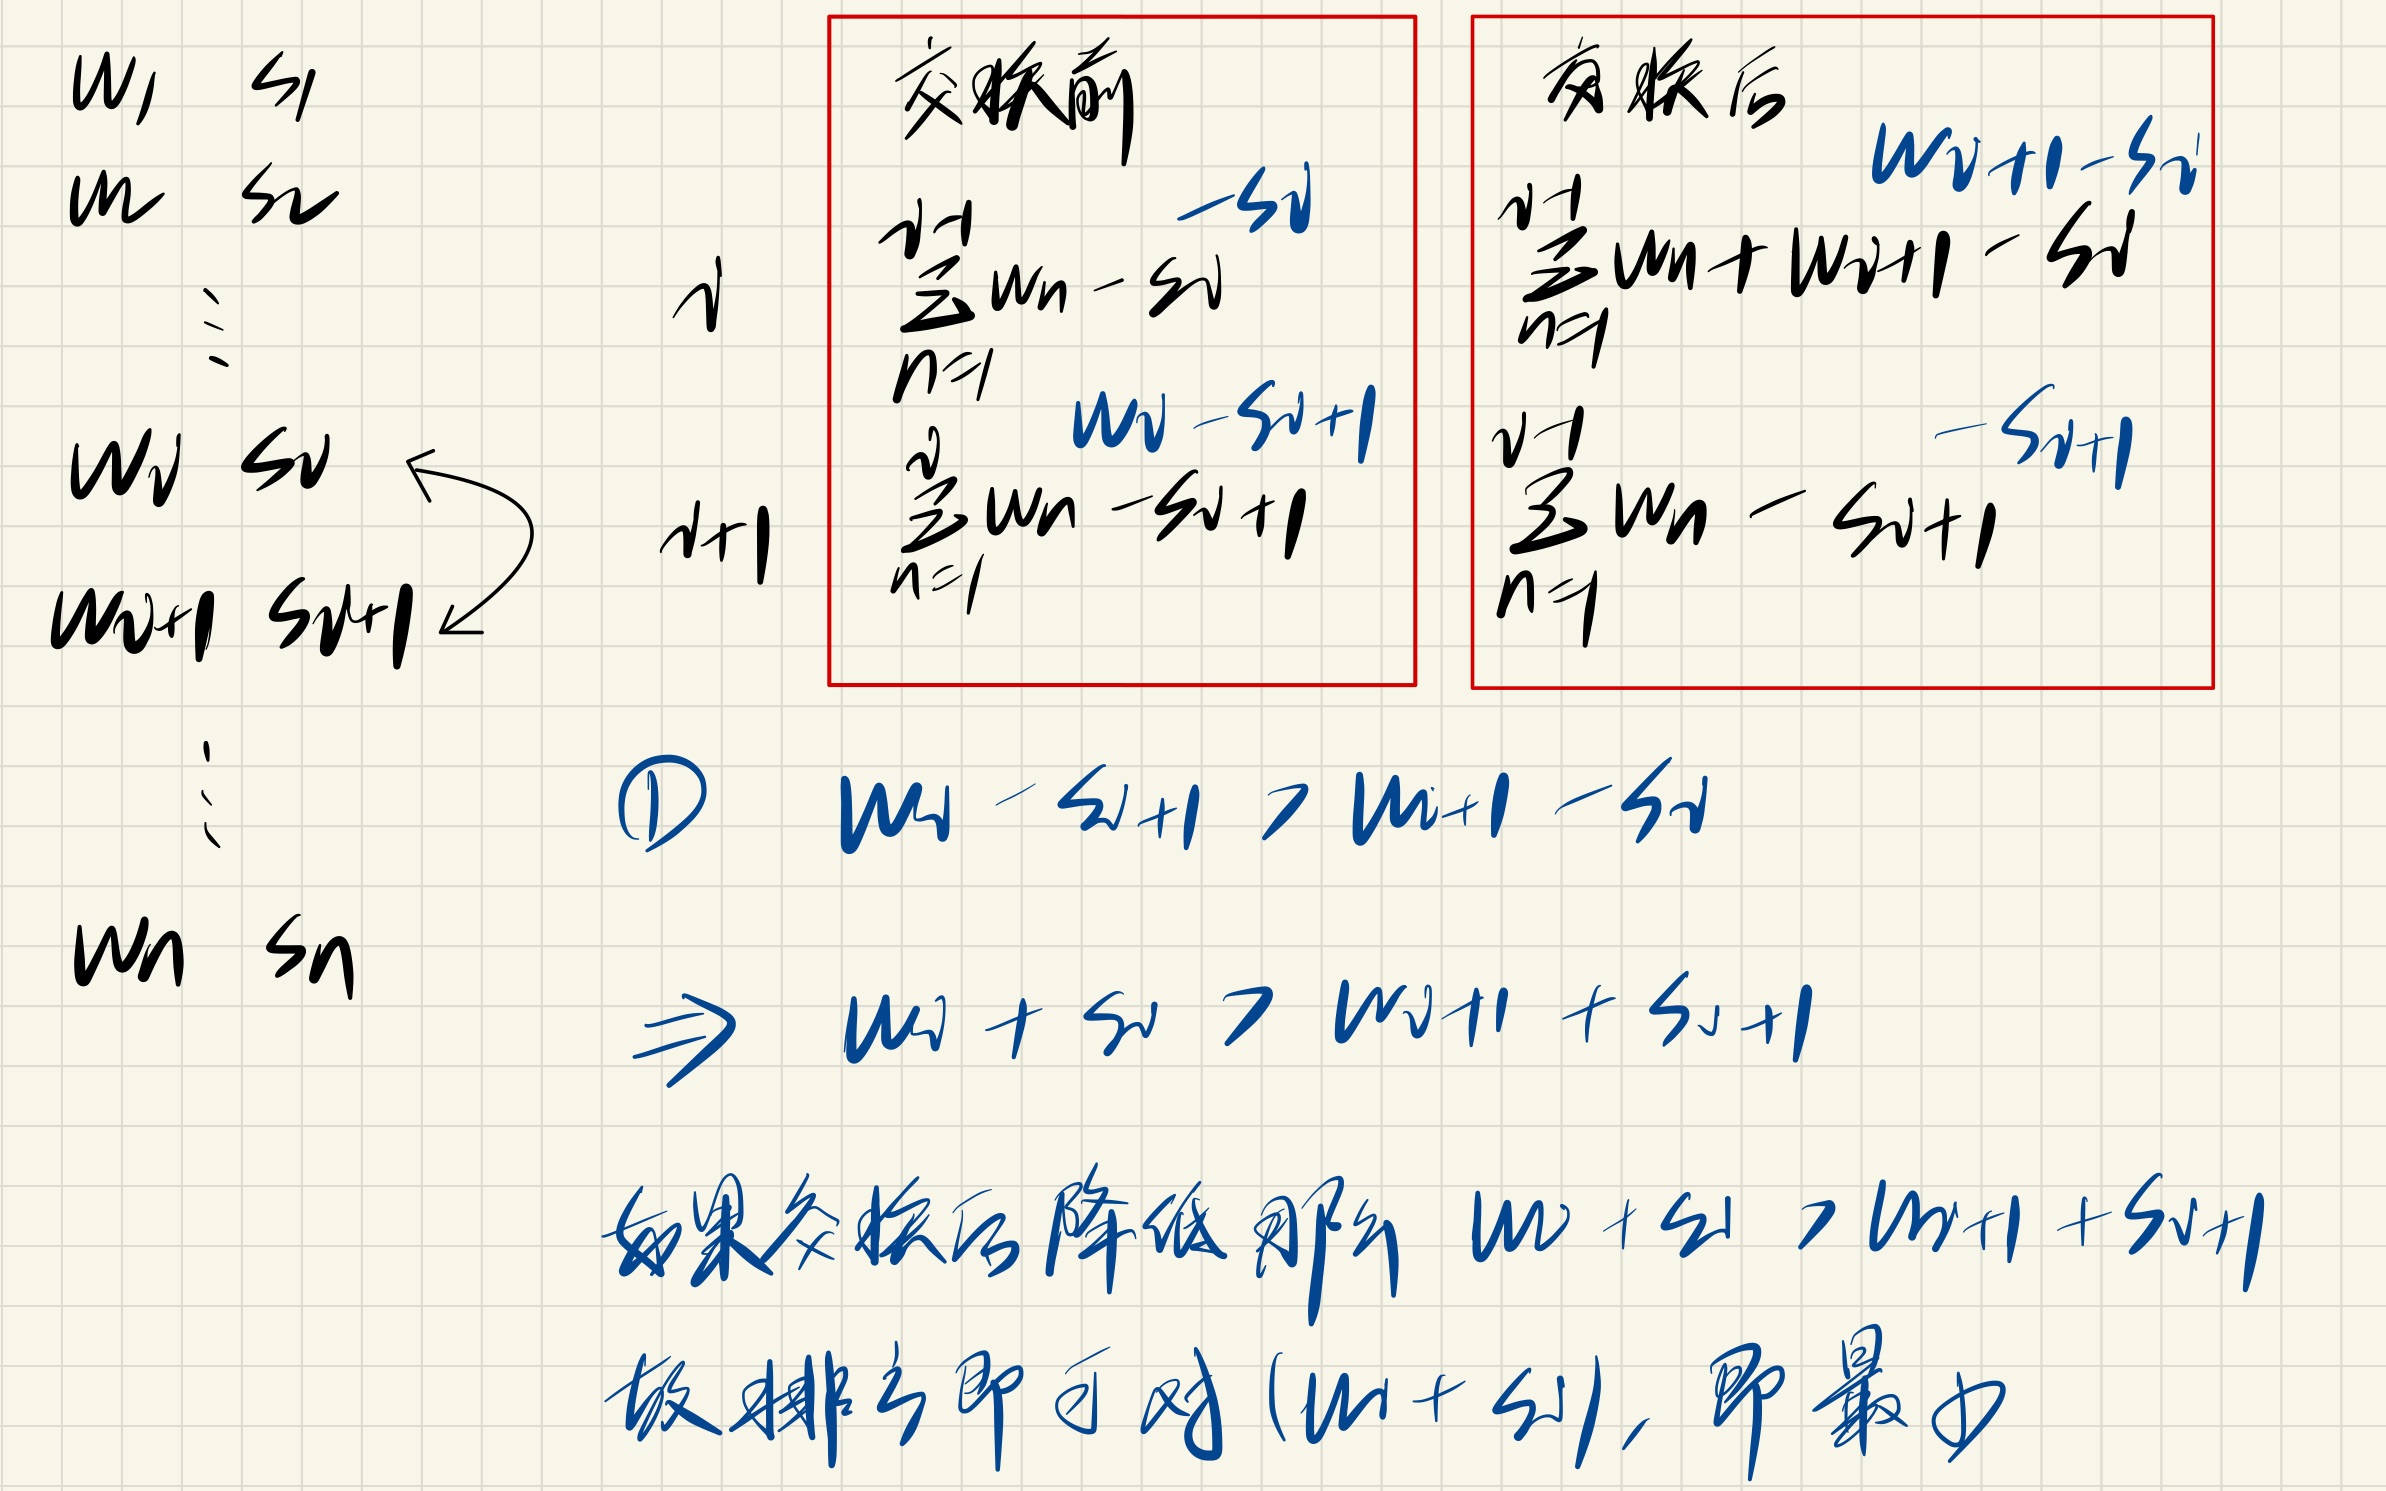 w₁ s₁
w₂ s₂
⋮
wᵢ sᵢ
wᵢ₊₁ sᵢ₊₁
⋮
wₙ sₙ
i
i+1
交换前
-sᵢ
i-1
Σ wₙ - sᵢ
n=1
wᵢ - sᵢ₊₁
i
Σ wₙ - sᵢ₊₁
n=1
交换后
wᵢ₊₁ - sᵢ
i-1
Σ wₙ + wᵢ₊₁ - sᵢ
n=1
- sᵢ₊₁
i-1
Σ wₙ - sᵢ₊₁
n=1
① wᵢ - sᵢ₊₁ > wᵢ₊₁ - sᵢ
⇒ wᵢ + sᵢ > wᵢ₊₁ + sᵢ₊₁
如果交换后降低 即 wᵢ + sᵢ > wᵢ₊₁ + sᵢ₊₁
故排序即可 (wᵢ + sᵢ), 即最小